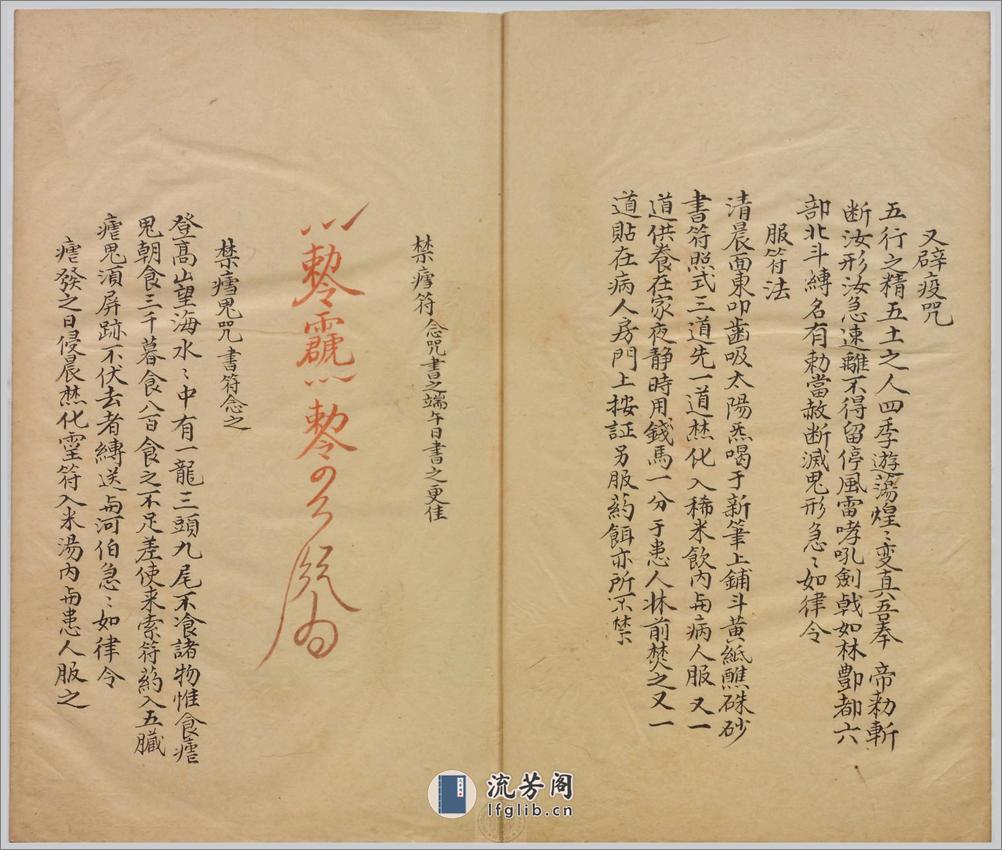 又辟疫咒
五行之精五土之人四季遊蕩煌〻变真吾奉 帝勑斬
断汝形汝急速離不得留停風雷哮吼劍戟如林酆都六
部北斗縛名有勅當赦断滅鬼形急〻如律令
服符法
清晨面東叩齒吸太陽炁喝于新筆上鋪斗黄紙蘸硃砂
書符照式三道先一道焚化入稀米飲内与病人服又一
道供養在家夜静時用錢馬一分于患人牀前焚之又一
道貼在病人房門上按証另服药餌亦所不禁
禁瘧符 念咒書之端午日書之更佳
禁瘧鬼咒 書符念之
登髙山望海水〻中有一龍三頭九尾不飡諸物惟食瘧
鬼朝食三千暮食八百食之不足差使来索符药入五臟
瘧鬼須屏跡不伏去者縛送与河伯急〻如律令
瘧發之日侵晨焚化靈符入米湯内与患人服之
流芳阁
lfglib.cn